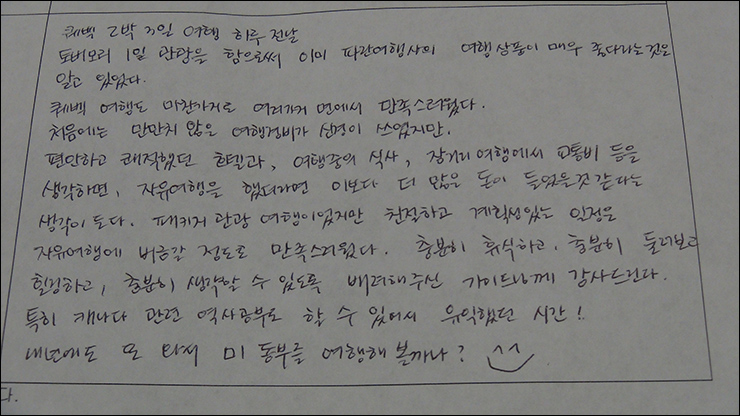 퀘백 2박 3일 여행 하루 전날
토버모리 1일 관광을 함으로써 이미 파란여행사의 여행상품이 매우 좋다라는것은
알고 있었다.
퀘백 여행도 마찬가지로 여러가지 면에서 만족스러웠다.
처음에는 만만치 않은 여행경비가 신경이 쓰였지만.
편안하고 쾌적했던 호텔과, 여행중의 식사, 장거리 여행에서 교통비 등을
생각하면, 자유여행을 했더라면 이보다 더 많은 돈이 들었을것 같다는
생각이 든다. 패키지 관광 여행이었지만 친절하고 계획성있는 일정은
자유여행에 버금갈 정도로 만족스러웠다. 충분히 휴식하고, 충분히 둘러보고
힐링하고, 충분히 생각할 수 있도록 배려해주신 가이드님께 감사드린다.
특히 캐나다 관련 역사공부도 할 수 있어서 유익했던 시간!
내년에도 또 와서 미 동부를 여행해 볼까나? ^^
다.